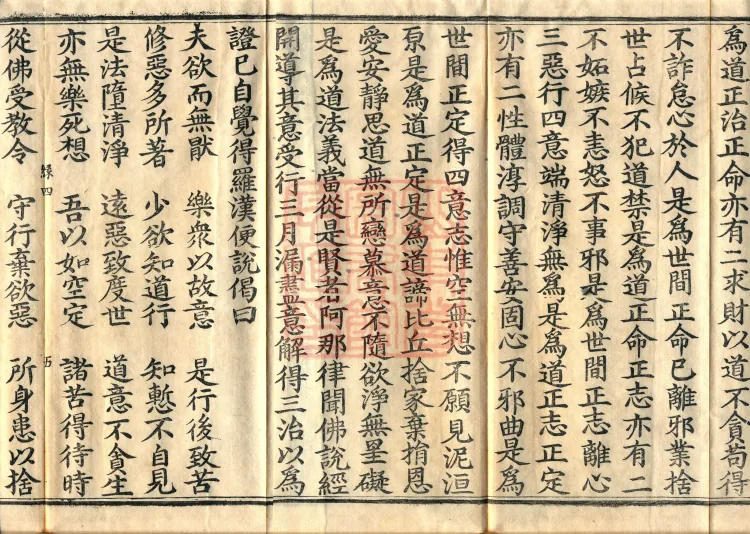 為道正治正命亦有二求財以道不貪苟得
不詐怠心於人是為世間正命已離邪業捨
世占候不犯道禁是為道正命正志亦有二
不妬嫉不恚怒不事邪是為世間正志離心
三惡行四意端清淨無為是為道正志正定
亦有二性體淳調守善安固心不邪曲是為
世間正定得四意志惟空無想不願見泥洹
原是為道正定是為道諦比丘捨家棄捐恩
愛安靜思道無所戀慕意不隨欲淨無罣礙
是為道法義當從是賢者阿那律聞佛說經
開導其意受行三月漏盡意解得三治以為
證已自覺得羅漢便說偈曰
夫欲而無猒 樂衆以故意 是行後致苦
修惡多所著 少欲知道行 知慙不自見
是法墮清淨 遠惡致度世 道意不貪生
亦無樂死想 吾以如空定 諸苦得待時
緣四 五
從佛受教令 守行棄欲惡 所身患以捨